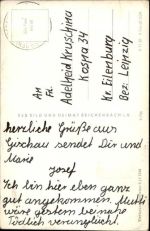 An
Frl.
Adelheid Kruschina
Kospa 34
Kr. Eilenburg
Bez: Leipzig
BILD UND HEIMAT REICHENBACH
herzliche Grüße aus
sendet Dir und
Marie
Josef
Ich bin hier eben ganz
gut angekommen. Mutti
wäre gestern beinahe
Tödlich verunglückt.